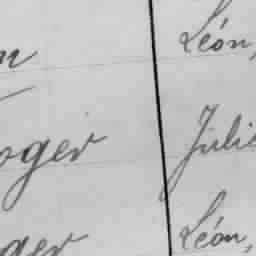 Léon,
oger Julie
ger Léon,